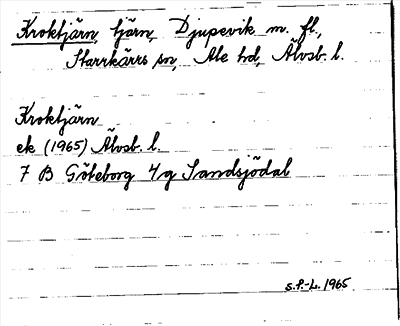 Kroktjärn, tjärn, Djupevik m. fl.,
Starrkärrs sn, Ale hd, Älvsb. l.
Kroktjärn
ek (1965) Älvsb. l.
7 B Göteborg 4g Sandsjödal
S.F.-L. 1965